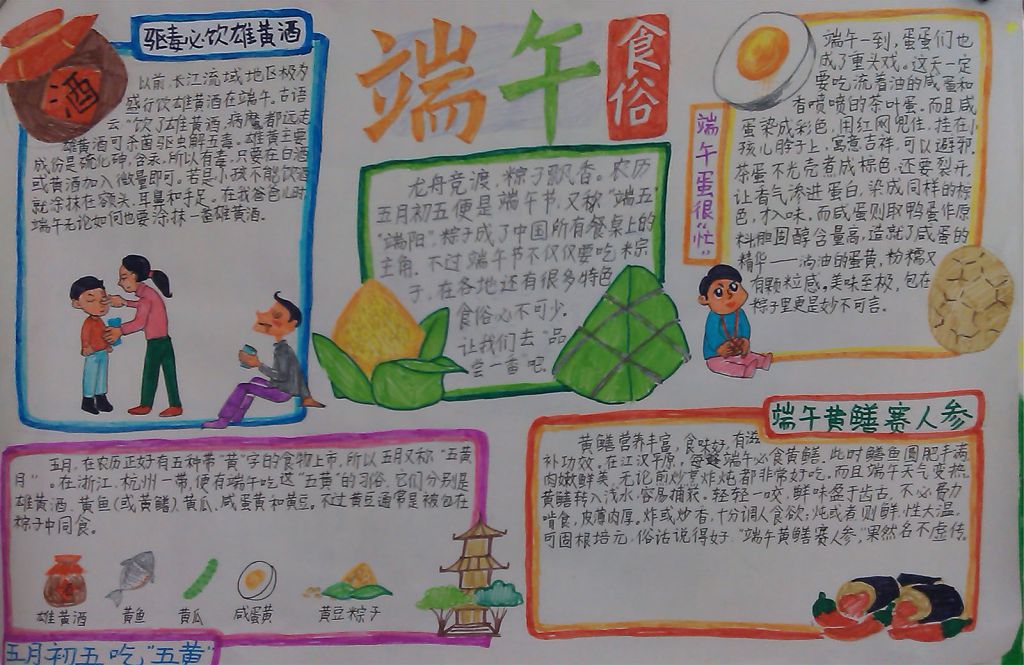 驱毒必饮雄黄酒
酒
以前,长江流域地区极为
盛行饮雄黄酒在端午。古语
云"饮了雄黄酒,病魔都远走
雄黄酒可杀菌驱虫解五毒。雄黄主要
成份是硫化砷,含汞,所以有毒,只要在白酒
或黄酒加入微量即可。若是小孩不能饮酒
就涂抹在额头、耳鼻和手足。在我爸爸儿时
端午无论如何也要涂抹一番雄黄酒。
端午
食俗
龙舟竞渡,粽子飘香。农历
五月初五便是端午节,又称"端五
"端阳"。粽子成了中国所有餐桌上的
主角。不过端午节不仅仅要吃粽
子,在各地还有很多特色
食俗必不可少。
让我们去"品
尝一番"吧
端午蛋很"忙"
端午一到,蛋蛋们也
成了重头戏。这天一定
要吃流着油的咸蛋和
香喷喷的茶叶蛋。而且咸
蛋染成彩色,用红网兜住,挂在小
孩儿脖子上,寓意吉祥,可以避邪。
茶蛋不光壳煮成棕色,还要裂开,
让香气渗进蛋白,染成同样的棕
色,才入味。而咸蛋则取鸭蛋作原
料胆固醇含量高,造就了咸蛋的
精华——淌油的蛋黄,粉糯又
有颗粒感。美味至极,包在
粽子里更是妙不可言。
五月,在农历正好有五种带"黄"字的食物上市,所以五月又称"五黄
月"。在浙江、杭州一带,便有端午吃这"五黄"的习俗。它们分别是
雄黄酒、黄鱼(或黄鳝)、黄瓜、咸蛋黄和黄豆。不过黄豆通常是被包在
粽子中同食。
雄黄酒 黄鱼 黄瓜 咸蛋黄 黄豆粽子
五月初五吃"五黄"
端午黄鳝赛人参
黄鳝营养丰富,食味好,有滋
补功效。在江汉平原,每逢端午必食黄鳝。此时鳝鱼圆肥丰满,
肉嫩鲜美,无论煎炒烹炸炖都非常好吃。而且端午天气变热,
黄鳝转入浅水,容易捕获。轻轻一咬,鲜味盈于齿舌,不必费力
啃食,皮薄肉厚。炸或炒香,十分调人食欲;炖或煮则鲜,性大温,
可固根培元。俗话说得好"端午黄鳝赛人参,"果然名不虚传。